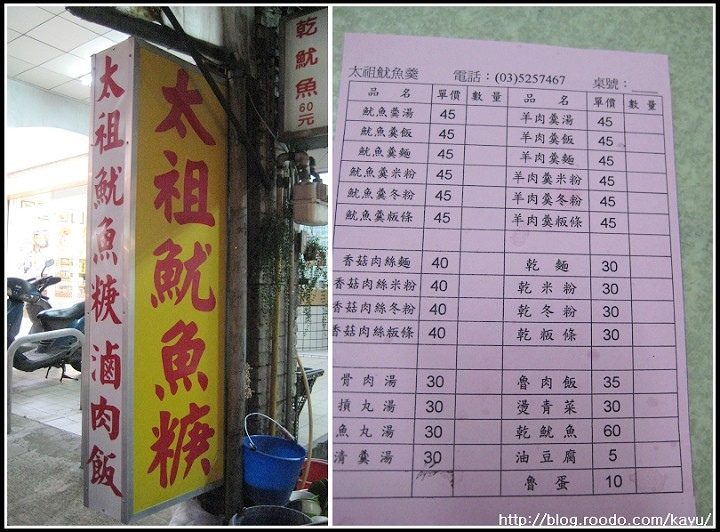 太祖魷魚焿 滷肉飯
太祖魷魚焿
乾魷魚
60元
太祖魷魚羹 電話:(03)5257467 桌號:
品名 單價 數量 品名 單價 數量
魷魚羹湯 45 羊肉羹湯 45
魷魚羹飯 45 羊肉羹飯 45
魷魚羹麵 45 羊肉羹麵 45
魷魚羹米粉 45 羊肉羹米粉 45
魷魚羹冬粉 45 羊肉羹冬粉 45
魷魚羹粄條 45 羊肉羹粄條 45
香菇肉絲麵 40 乾麵 30
香菇肉絲米粉 40 乾米粉 30
香菇肉絲冬粉 40 乾冬粉 30
香菇肉絲粄條 40 乾粄條 30
骨肉湯 30 魯肉飯 35
摃丸湯 30 燙青菜 30
魚丸湯 30 乾魷魚 60
清羹湯 30 油豆腐 5
魯蛋 10
http://blog.roodo.com/kavu/